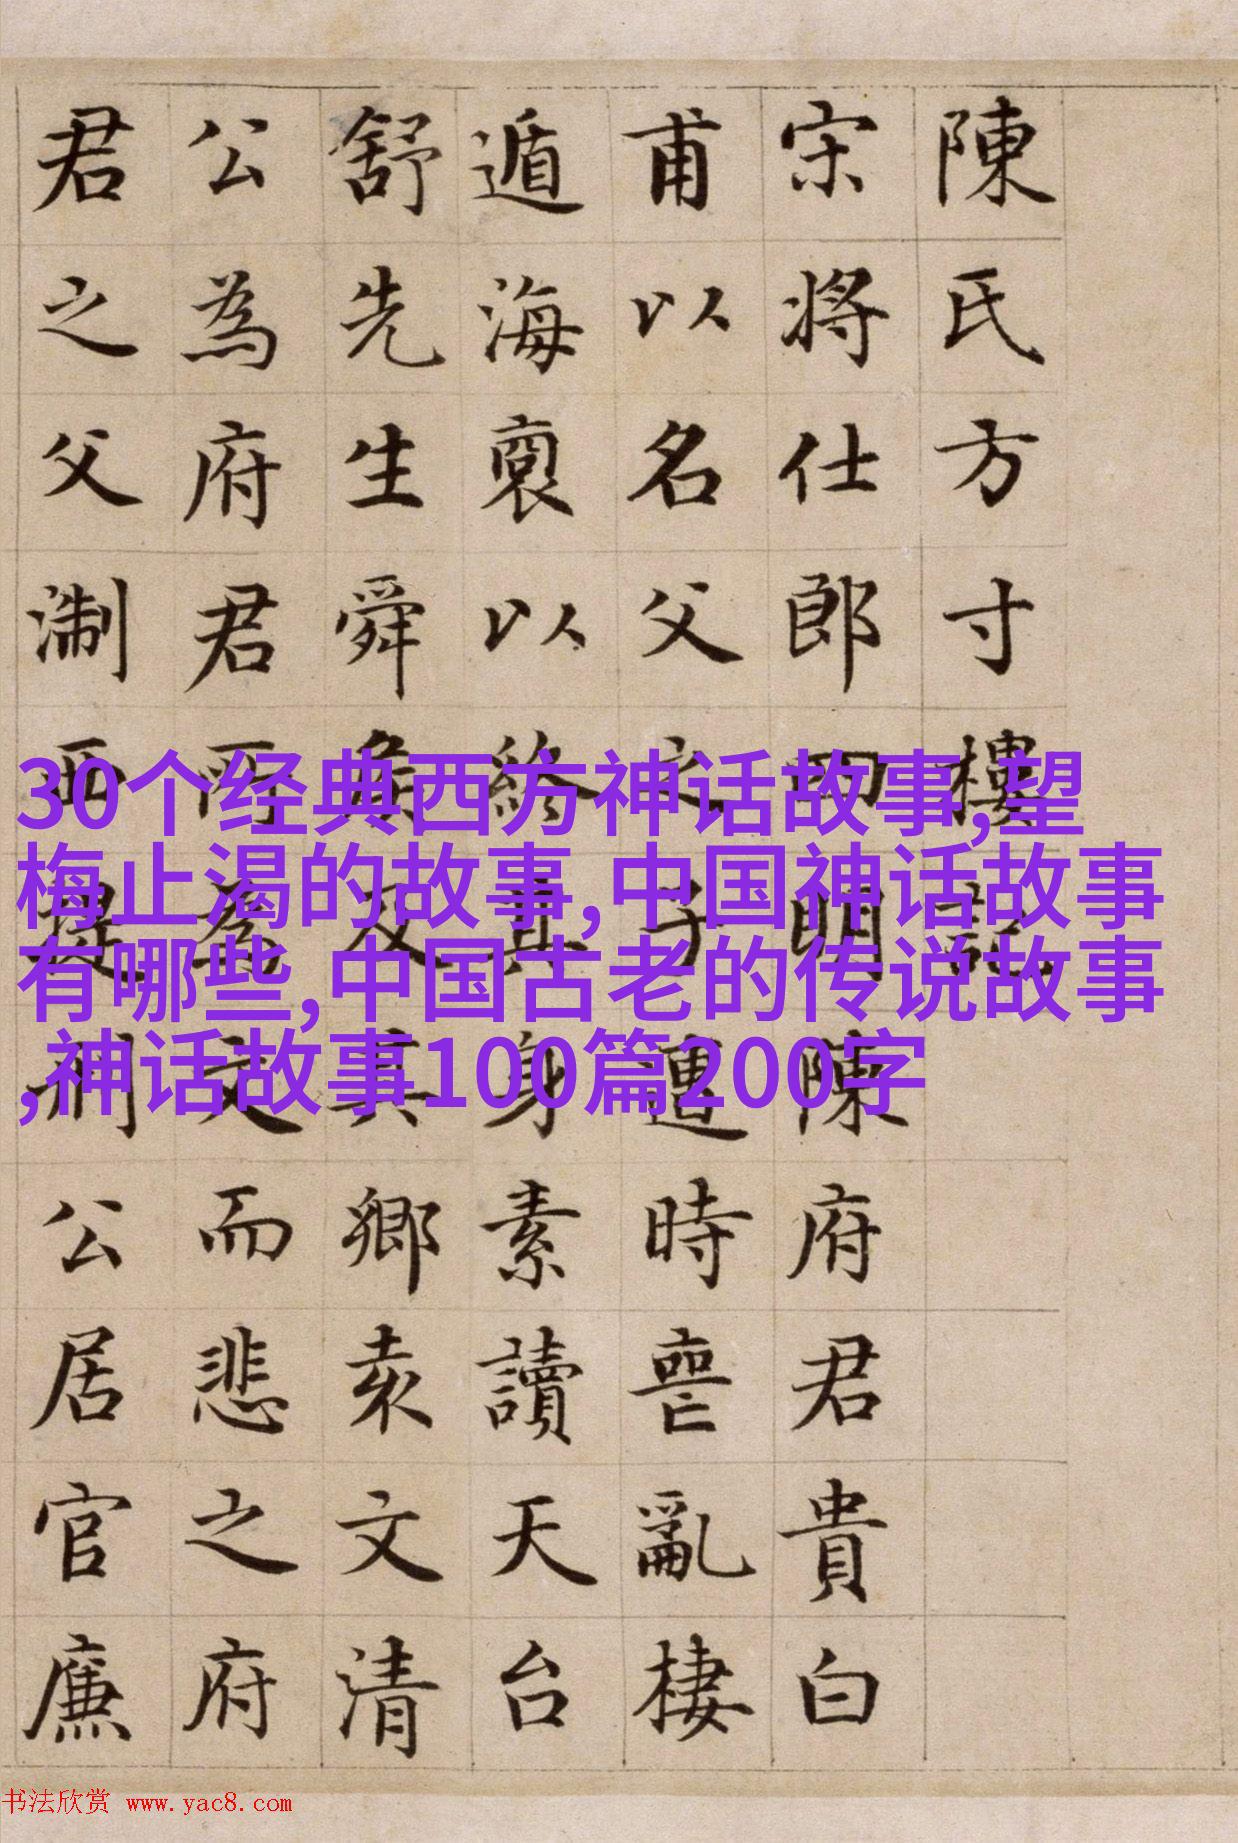 陳氏方寸樓記
宋將仕郎四明陳府君貴白
甫以名父之子遭時喪亂棲
遁海裔以終其身素讀天台
舒先生舜侯及其鄉袁文清
公為府君所為文而悲之府
君之父淛西提刑公居官廉
30个经典西方神话故事,望
梅止渴的故事,中国神话故事
有哪些,中国古老的传说故事
,神话故事100篇200字
书法欣赏 www.yac8.com